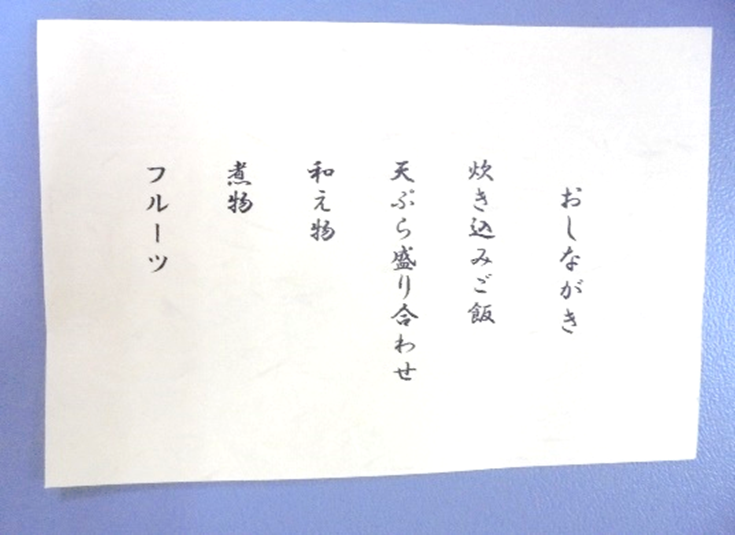 おしながき
炊き込みご飯
天ぷら盛り合わせ
和え物
煮物
フルーツ